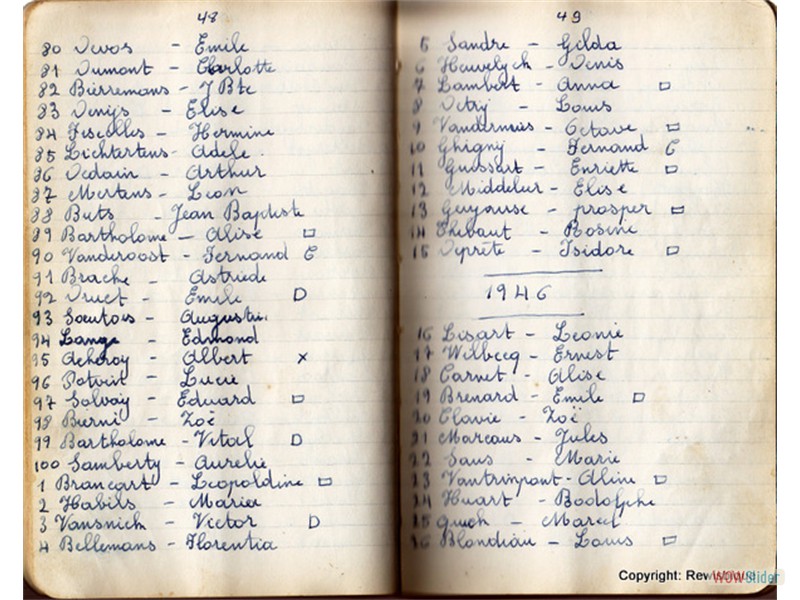 48
80 Devos - Emile
81 Dumont - Charlotte
82 Bierremans - J Bte
83 Denijs - Elise
84 Fiscelles - Hermine
85 Lichtertens - Adele.
86 Dedain - Arthur
87 Mertens - Leon
88 Buts - Jean Baptiste
89 Bartholome - Alise □
90 Vanderoost - Fernand C
91 Brache - Astriede
92 Druet - Emile D
93 Sautois - Augustin
94 Lange - Edmond
95 Acheroy - Albert x
96 Potvin - Lucie
97 Solvay - Eduard □
98 Bierni - Zoë
99 Bartholome - Vital D
100 Samberty - Aurelie
1 Brancart - Leopoldine □
2 Habils - Mariee
3 Vansnick - Victor D
4 Bellemans - Florentia
49
5 Sandre - Gilda
6 Heuvelyck - Denis
7 Lambert - Anna □
8 Detry - Louis
9 Vandermeis - Octave □
10 Ghigny - Fernand C
11 Guissart - Enriette □
12 Middeleer - Elise
13 Guyouse - prosper □
14 Thebaut - Rosine
15 Deprète - Isidore □
1946
16 Lisart - Leonie
17 Wilbecq - Ernest
18 Carnet - Alise
19 Brenard - Emile □
20 Clavie - Zoë
21 Marcaus - Jules
22 Saus - Marie
23 Vantrinpont - Aline □
24 Huart - Rodolphe
25 - Marcel
26 Blondiau - Louis □
Copyright:
WOWSlider